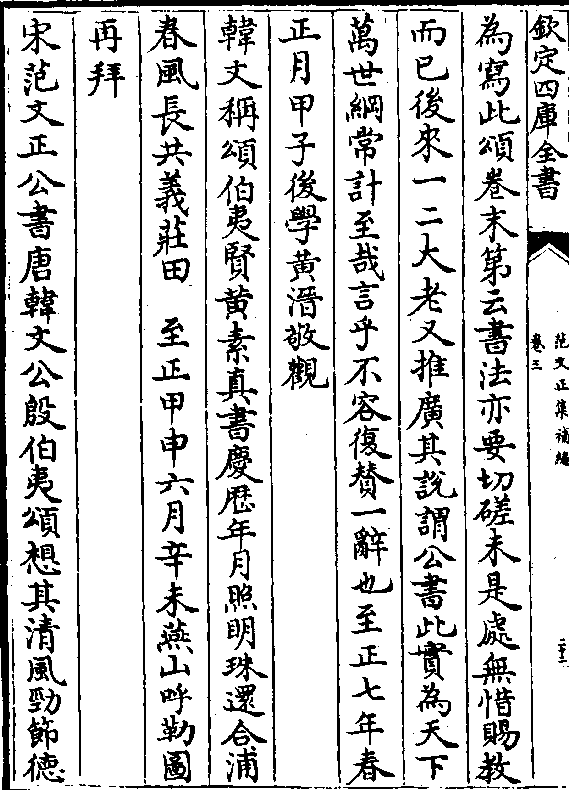 欽定四庫全書
范文正集補編
卷三
二十二
為寫此頌卷末第云書法亦要切磋未是處無惜賜教
而已後來一二大老又推廣其說謂公書此實為天下
萬世綱常計至哉言乎不容復贊一辭也至正七年春
正月甲子後學黃溍敬觀
韓文稱頌伯夷賢黄素真書慶歴年月照明珠還合浦
春風長共義莊田　至正甲申六月辛未燕山呼勒圖
再拜
宋范文正公書唐韓文公殷伯夷頌想其清風勁節德